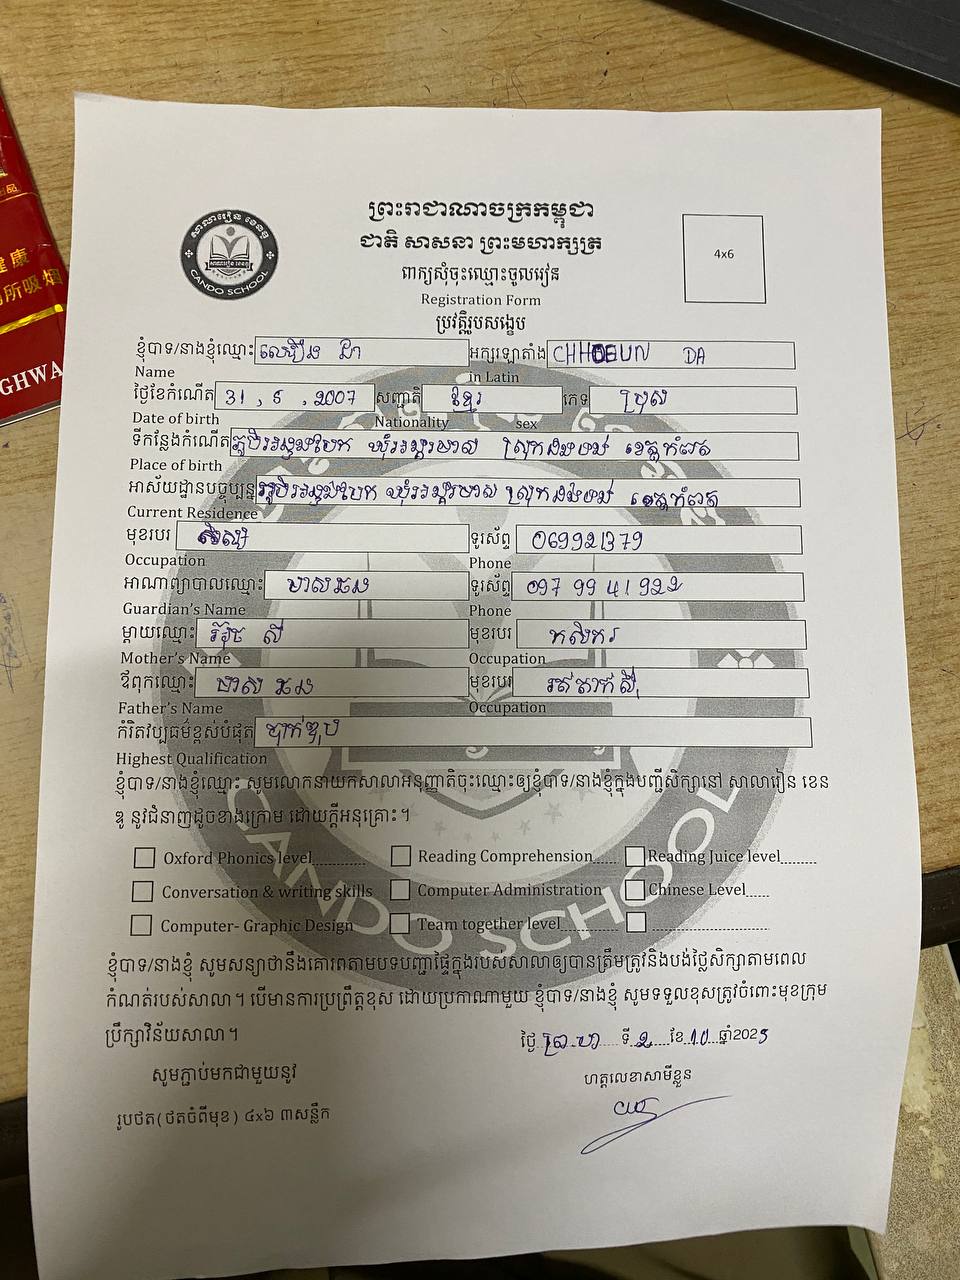 សាលារៀន ខេនឌូ
CANDO SCHOOL
ព្រះរាជាណាចក្រកម្ពុជា
ជាតិ សាសនា ព្រះមហាក្សត្រ
4x6
ពាក្យសុំចុះឈ្មោះចូលរៀន
Registration Form
ប្រវត្តិរូបសង្ខេប
ខ្ញុំបាទ/នាងខ្ញុំឈ្មោះ ឈឿន ដា អក្សរឡាតាំង CHHOEUN DA
Name in Latin
ថ្ងៃខែកំណើត 31 , 5 , 2007 សញ្ជាតិ ខ្មែរ ភេទ ប្រុស
Date of birth Nationality sex
ទីកន្លែងកំណើត ភូមិ ឃុំ ស្រុក ខេត្តកំពត
Place of birth
អាស័យដ្ឋានបច្ចុប្បន្ន ភូមិ ឃុំ ស្រុក ខេត្តកំពត
Current Residence
មុខរបរ សិស្ស ទូរស័ព្ទ 069921379
Occupation Phone
អាណាព្យាបាលឈ្មោះ មាស ឆន ទូរស័ព្ទ 097 99 41 922
Guardian's Name Phone
ម្តាយឈ្មោះ សី មុខរបរ កសិករ
Mother's Name Occupation
ឪពុកឈ្មោះ មាស ឆន មុខរបរ រត់តាក់ស៊ី
Father's Name Occupation
កំរិតវប្បធម៌ខ្ពស់បំផុត បាក់ឌុប
Highest Qualification
ខ្ញុំបាទ/នាងខ្ញុំឈ្មោះ សូមលោកនាយកសាលាអនុញ្ញាតិចុះឈ្មោះឲ្យខ្ញុំបាទ/នាងខ្ញុំក្នុងបញ្ជីសិក្សានៅ សាលារៀន ខេន
ឌូ នូវជំនាញដូចខាងក្រោម ដោយក្តីអនុគ្រោះ។
Oxford Phonics level............ Reading Comprehension...... Reading Juice level.........
Conversation & writing skills Computer Administration Chinese Level......
Computer- Graphic Design Team together level..............
ខ្ញុំបាទ/នាងខ្ញុំ សូមសន្យាថានឹងគោរពតាមបទបញ្ជាផ្ទៃក្នុងរបស់សាលាឲ្យបានត្រឹមត្រូវនិងបង់ថ្លៃសិក្សាតាមពេល
កំណត់របស់សាលា។ បើមានការប្រព្រឹត្តខុស ដោយប្រការណាមួយ ខ្ញុំបាទ/នាងខ្ញុំ សូមទទួលខុសត្រូវចំពោះមុខក្រុម
ប្រឹក្សាវិន័យសាលា។
ថ្ងៃ ព្រហ ទី 2 ខែ 10 ឆ្នាំ2025
សូមភ្ជាប់មកជាមួយនូវ
ហត្ថលេខាសាមីខ្លួន
រូបថត(ថតចំពីមុខ) ៤x៦ ៣សន្លឹក
健康
所吸烟
GHWA